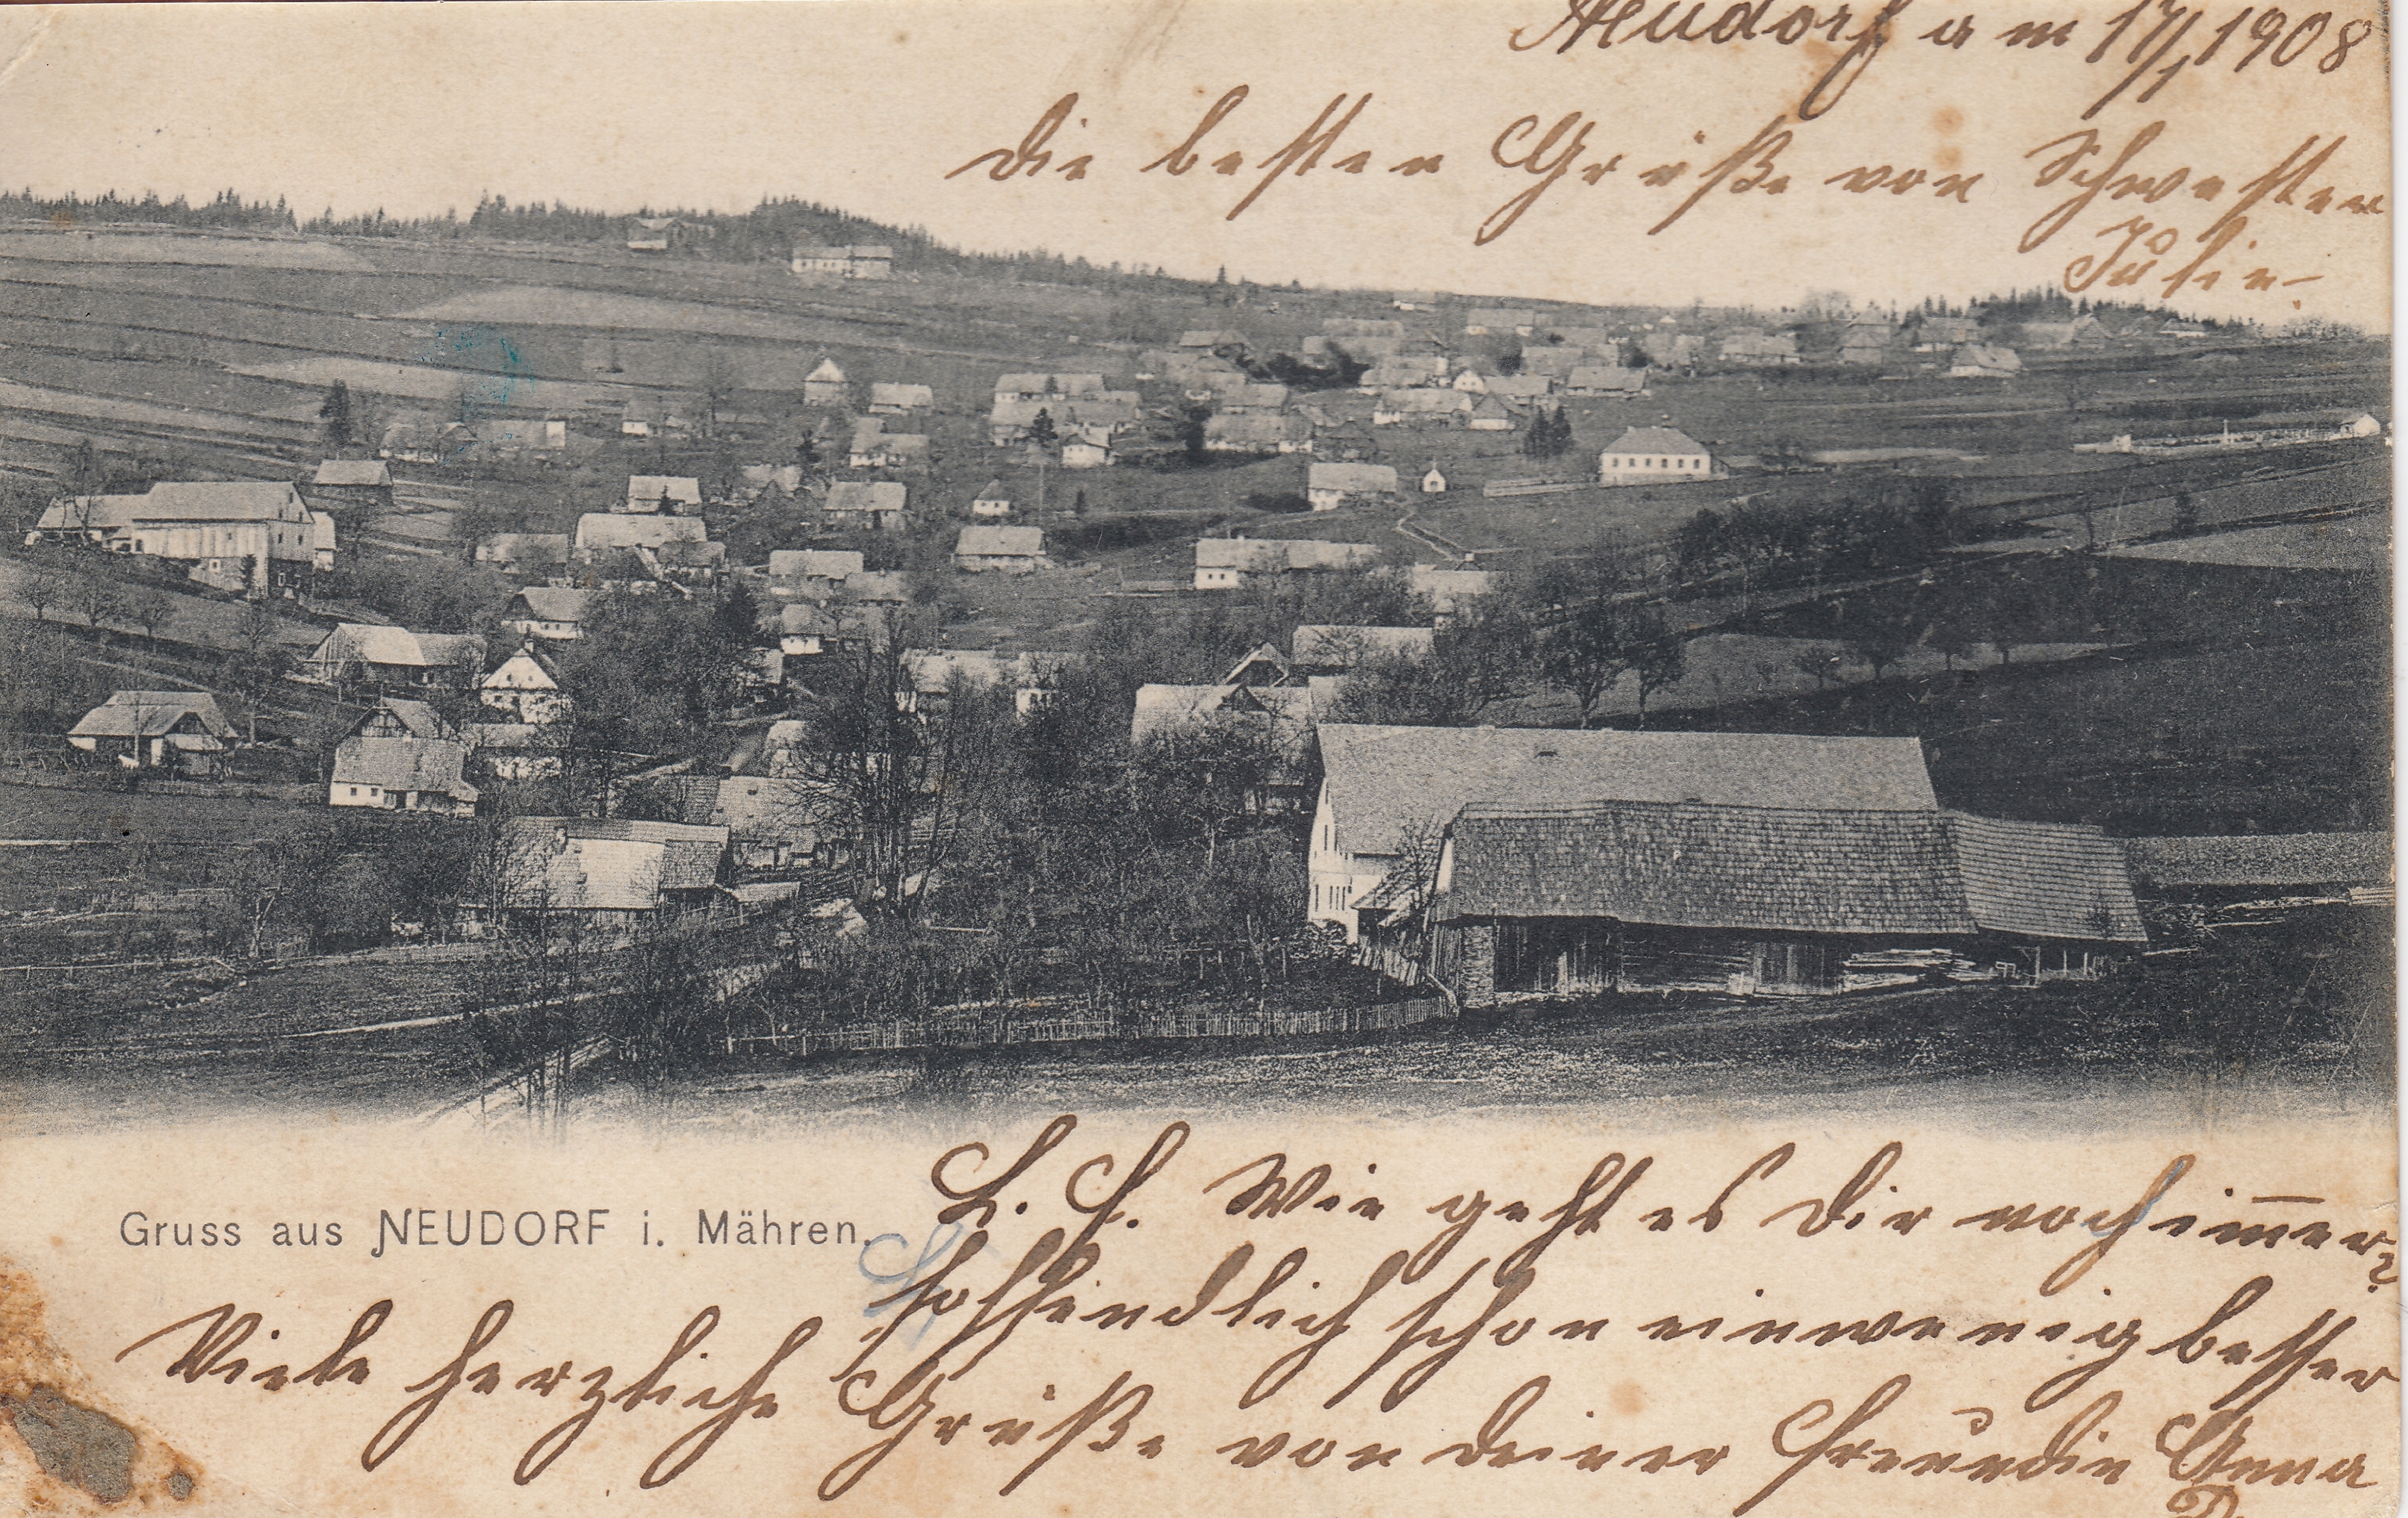 Neudorf am 17/1 1908
Die besten Grüße von Schwester
Julie
L. F. Wie geht es Dir noch im̅er?
hoffendlich schon einwenig besser
Gruss aus NEUDORF i. Mähren.
Viele herzliche Grüße von Deiner Freundin Anna